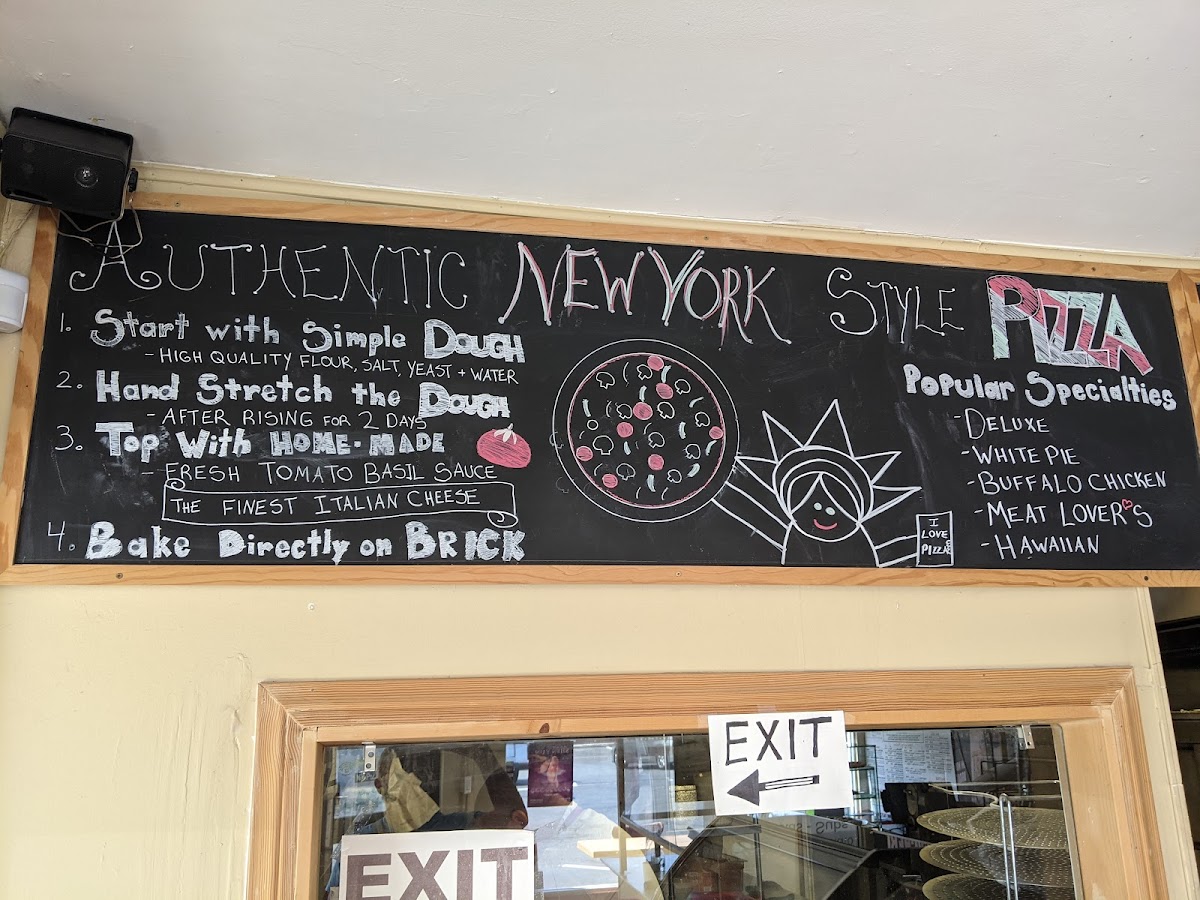 AUTHENTIC NEW YORK STYLE PIZZA
1. Start with Simple DOUGH
- HIGH QUALITY FLOUR, SALT, YEAST + WATER
2. Hand Stretch the DOUGH
- AFTER RISING FOR 2 DAYS
3. Top With HOME-MADE
- FRESH TOMATO BASIL SAUCE
THE FINEST ITALIAN CHEESE
4. Bake Directly on BRICK
I
LOVE
PIZZA
Popular Specialties
- DELUXE
- WHITE PIE
- BUFFALO CHICKEN
- MEAT LOVER'S
- HAWAIIAN
EXIT
EXIT